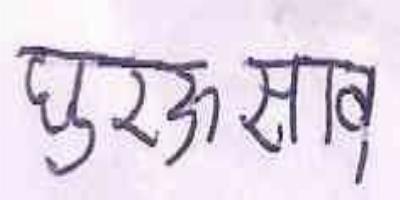 घुरऊ साव